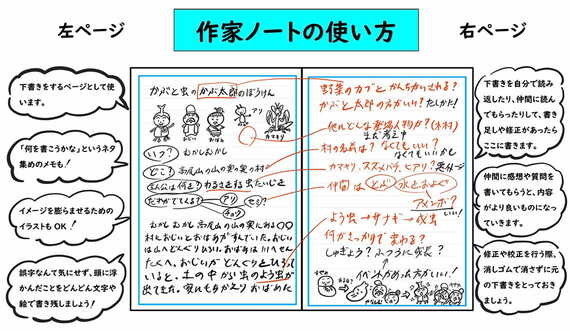 左ページ
作家ノートの使い方
右ページ
下書きをするページとして使
います。
「何を書こうかな」というネタ
集めのメモも!
イメージを膨らませるための
イラストもOK!
誤字なんて気にせず、頭に浮
かんだことをどんどん文字や
絵で書き残しましょう!
かぶと虫のかぶ太郎のぼうけん
アリ
カマキリ
いつ? むかしむかし
どこ? 高尾山の山の奥の奥の村
主人公は何を? わるさをする虫たいじを
だれがでてくる?
むかしむかし高尾山の山の奥にある〇〇
村におじいとおばあがすんでいた。おじい
は山へどんぐりひろい、おばあは川へせん
たくへ。おじいがどんぐりをひろって
いると、土の中から虫のよう虫が
出てきた。家にもちかえりおばあに
野菜のカブとかんちがいされる?
かぶと太郎の方がいい! たしかに!
他にどんな登場人物が?(木村)
まだ考え中
村の名前は? なくてもいい?
なくてもいいかも
カマキリ、スズメバチ、ヒアリ?
仲間は とぶ 水をおよぐ
アメンボ?
いい!
よう虫→サナギ→成虫
何がきっかけで変わる?
しゅぎょう? ふつうに成長?
イベントがあった方がいい!
下書きを自分で読み
返したり、仲間に読ん
でもらったりして、書き
足しや修正があったら
ここに書きます。
仲間に感想や質問を
書いてもらうと、内容
がより良いものになっ
ていきます。
修正や校正を行う際、
消しゴムで消さずに元
の下書きをとっておき
ましょう。